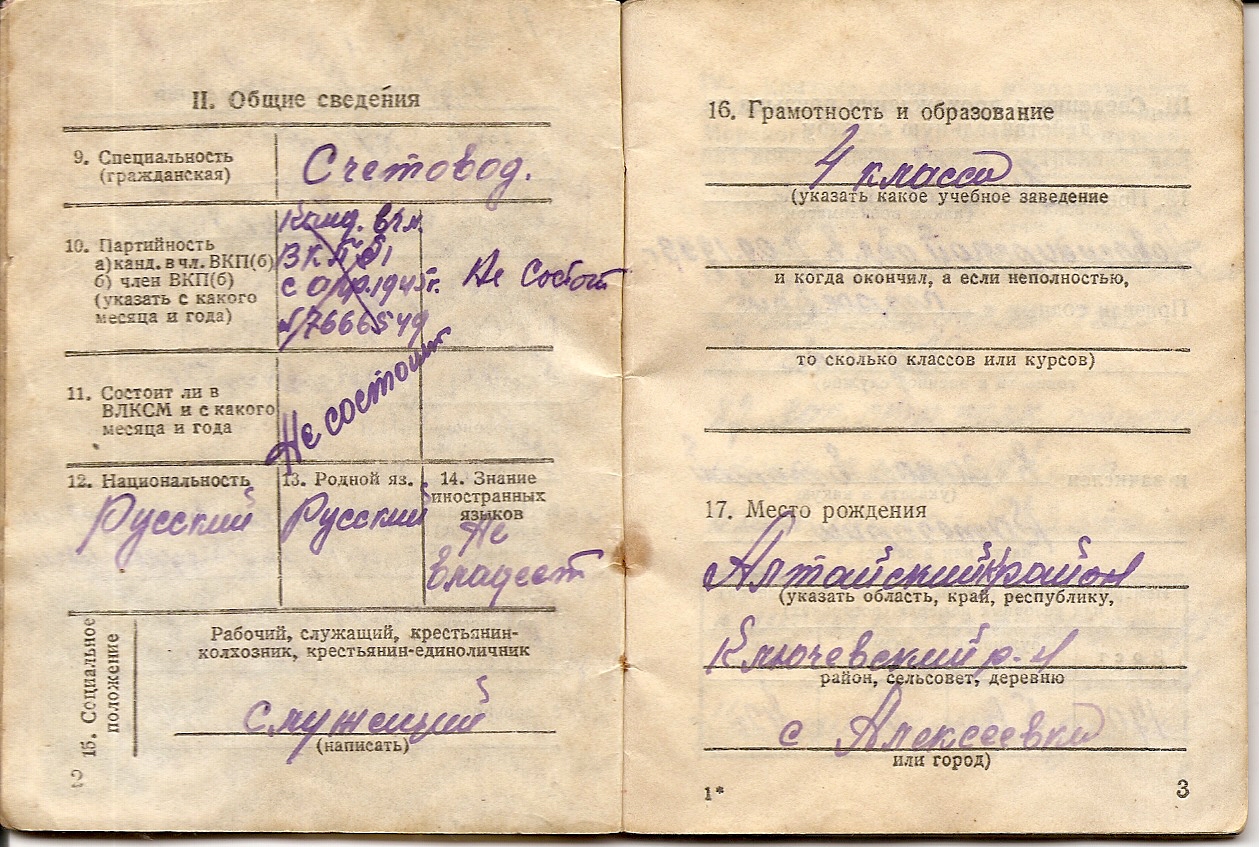 II. Общие сведения
9. Специальность
(гражданская)
Счетовод.
10. Партийность
а) канд. в чл. ВКП(б)
б) член ВКП(б)
(указать с какого
месяца и года)
Канд. в чл.
ВКП(б)
с апр. 1945г.
№7666549
Не состоит
11. Состоит ли в
ВЛКСМ и с какого
месяца и года
Не состоит
12. Национальность
Русский
13. Родной яз.
Русский
14. Знание
иностранных
языков
Не
владеет
15. Социальное
положение
Рабочий, служащий, крестьянин-
колхозник, крестьянин-единоличник
Служащий
(написать)
2
16. Грамотность и образование
4 класса
(указать какое учебное заведение
и когда окончил, а если неполностью,
то сколько классов или курсов)
17. Место рождения
Алтайский район
(указать область, край, республику,
Ключевский р-н
район, сельсовет, деревню
с Алексеевка
или город)
1*
3